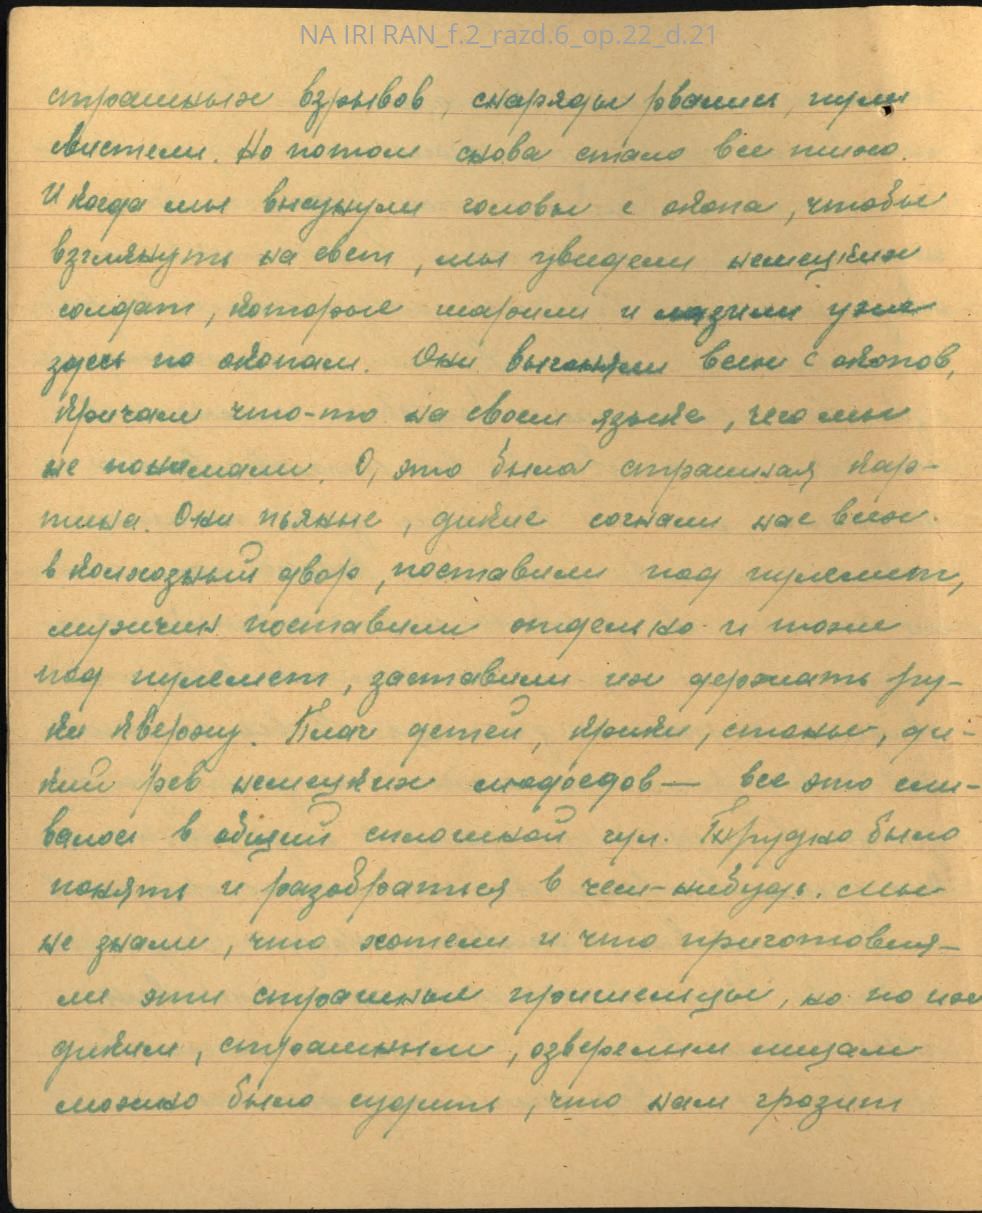 NA IRI RAN_f.2_razd.6_op.22_d.21
страшных взрывов, снаряды рвались, пули
свистели. Но потом снова стало все тихо.
И когда мы высунули головы с окопа, чтобы
взглянуть на свет, мы увидели немецких
солдат, которые шарили и лазили уже
здесь по окопам. Они выгоняли всех с окопов,
кричали что-то на своем языке, чего мы
не понимали. О, это была страшная кар-
тина. Они пьяные, дикие согнали нас всех
в колхозный двор, поставили под пулемет,
мужчин поставили отдельно и тоже
под пулемет, заставили их держать ру-
ки кверху. Плач детей, крики, стоны, ди-
кий рев немецких людоедов — все это сли-
валось в общий сплошной гул. Трудно было
понять и разобраться в чем-нибудь. Мы
не знали, что хотели и что приготовля-
ли эти страшные пришельцы, но по их
диким, страшным, озверелым лицам
можно было судить, что нам грозит